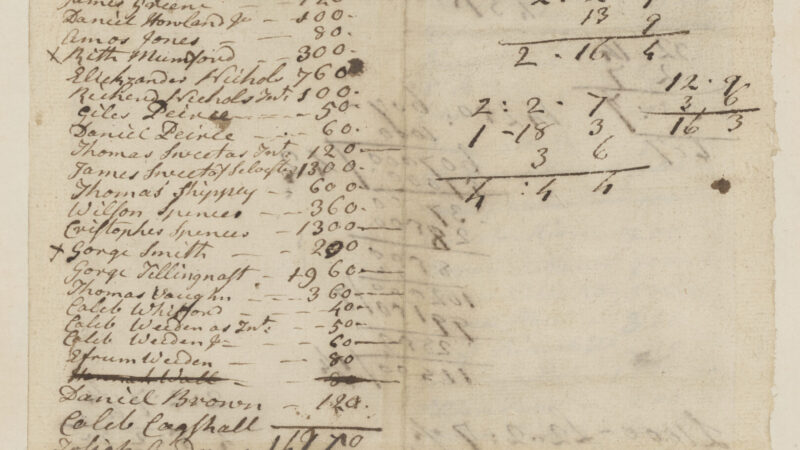 James Greene - 120
Daniel Howland Jr - 100.
Amos Jones - 80.
x Rith Mumford - 300.
Elickzander Nichols 760
Richerd Nichols Int: 100.
Giles Peirce - 50.
Daniel Peirce - 60.
Thomas Sweet as Int: 120
James Sweet of Selvester 1300
Thomas Shippey - 600.
Wilson Spences - 360.
Cristophes Spences - 1300
x Gorge Smith - 200.
Gorge Tillingnast - 1960
Thomas Vaughn - 360
Caleb Whitford - 40
Caleb Weeden as Int: - 50
Caleb Weeden Jr - 60
Efrum Weeden - 80
Hannah Wall - 80
Daniel Brown - 120.
Caleb Cagshall
16970
13 9
2 . 16 4
2 : 2 . 7
1 - 18 3
3 6
4 : 4 4
12 . 9
3 6
16 3